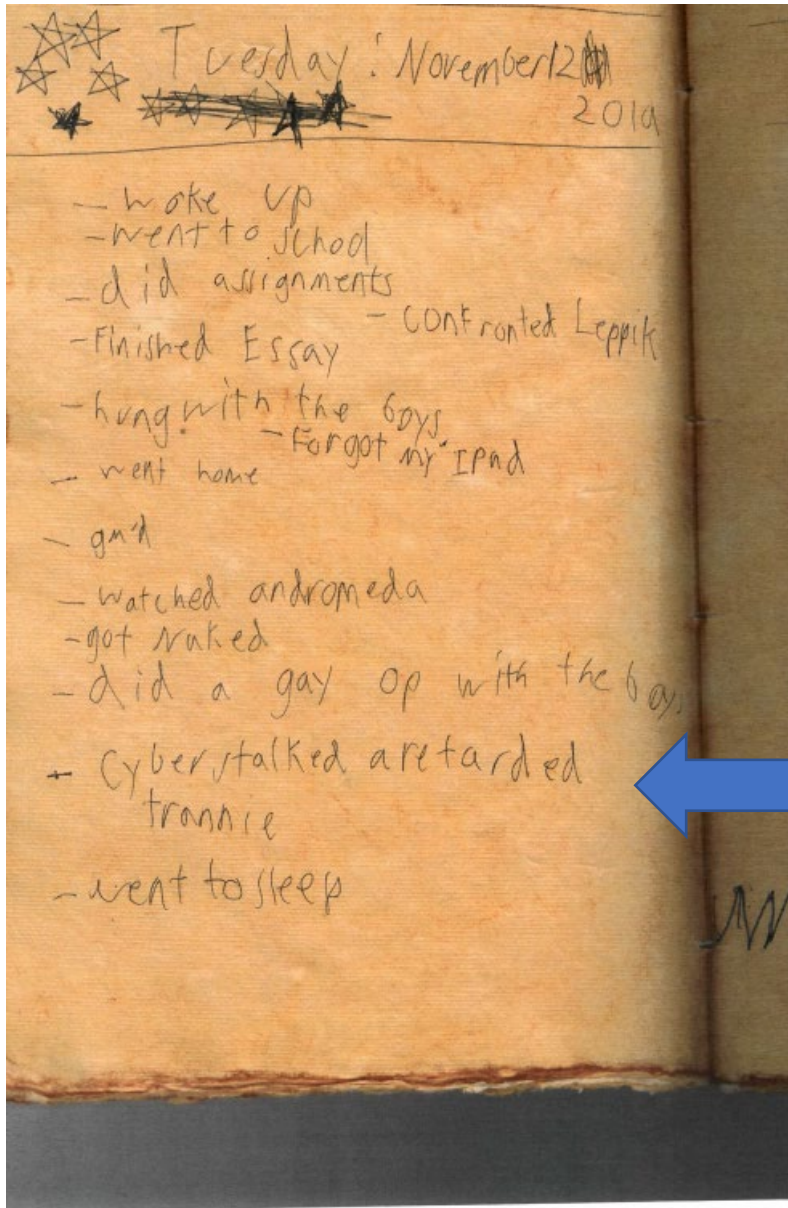 Tuesday: November 12
2019
- woke up
- went to school
- did assignments
- confronted Leppik
- Finished Essay
- hung with the boys
- Forgot my Ipad
- went home
- gm'd
- watched andromeda
- got naked
- did a gay op with the boys
- Cyberstalked a retarded
trannie
- went to sleep